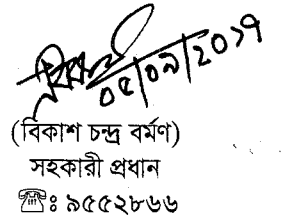 ০৫/০৯/২০১৭
(বিকাশ চন্দ্র বর্মণ)
সহকারী প্রধান
☎ঃ ৯৫৫২৮৬৬